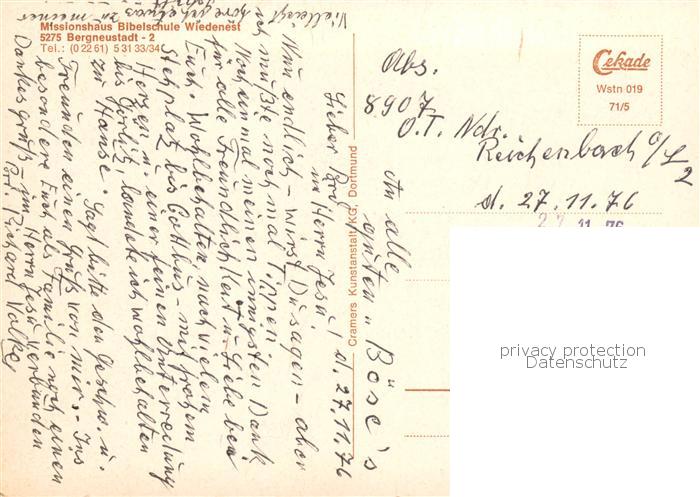 Missionshaus Bibelschule Wiedenest
5275 Bergneustadt - 2
Tel.: (0 22 61) 5 31 33/34
Vielleicht höre ich etwas zu meiner
d. 27.11.76
Lieber Br.
im Herrn Jesu!
Nun endlich – wirst Du sagen – aber
ich mußte noch mal tippen.
Noch einmal meinen innigsten Dank
für alle Freundlichkeit u. Liebe bei
Euch. Wohlbehalten, nach vielem
Stehplatz bis Cottbus – mit frohem
Herzen u. einer feinen Unterredung
bis Görlitz, landete ich wohlbehalten
zu Hause. Sagt bitte den Geschw. u.
Freunden einen Gruß von mir. – Ins
besondere Euch als Familie noch einen
Dankesgruß – im Herrn Jesu verbunden
Br. Richard Volke
Cramers Kunstanstalt KG, Dortmund
An alle
guten u Böse's
Abs.
8907
O.T. Ndr.
Reichenbach o/L
2
d. 27.11.76
27.11.76
Cekade
Wstn 019
71/5
privacy protection
Datenschutz